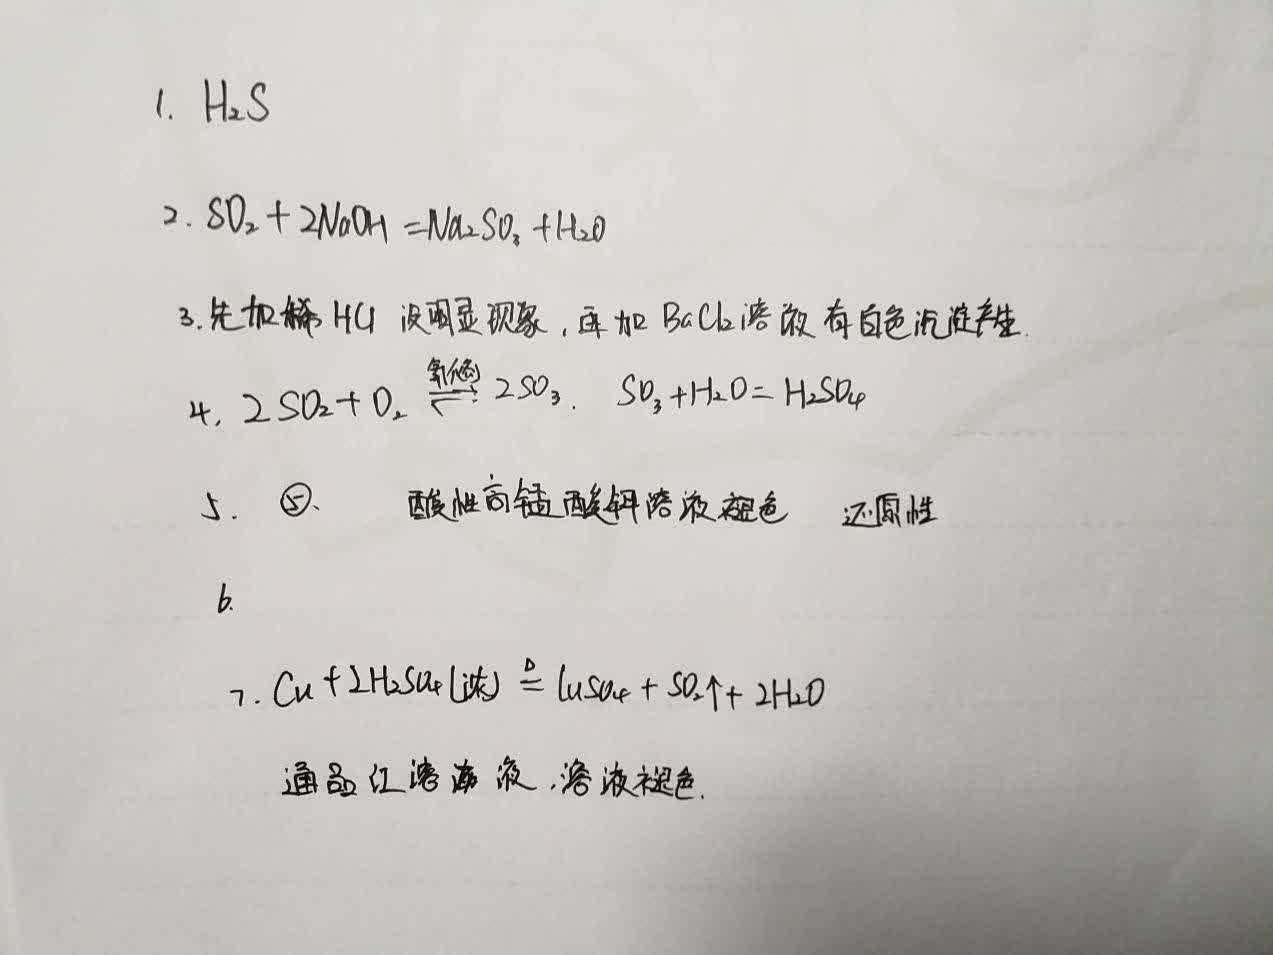 1. H₂S
2. SO₂ + 2NaOH = Na₂SO₃ + H₂O
3. 先加稀 HCl 没明显现象, 再加 BaCl₂溶液有白色沉淀产生.
4. 2SO₂ + O₂ ⇌ 2SO₃. SO₃ + H₂O = H₂SO₄
5. ⑤. 酸性高锰酸钾溶液褪色 还原性
6.
7. Cu + 2H₂SO₄(浓) ≜ CuSO₄ + SO₂↑ + 2H₂O
通品红溶液, 溶液褪色.